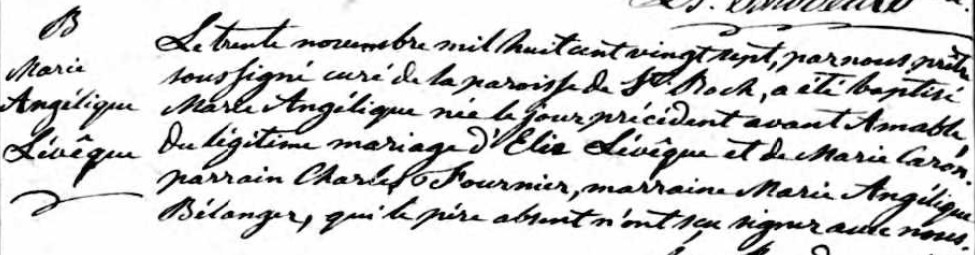 B
Marie
Angélique
Lévêque
Le trente novembre mil huit cent vingt sept, par nous prêtre
soussigné curé de la paroisse de St Roch, a été baptisé
Marie Angélique née le jour précédent avant
du légitime mariage d'Elie Lévêque et de Marie Caron.
parrain Charles Fournier, marraine Marie Angélique
Bélanger, qui le père absent n'ont seu signer avec nous.